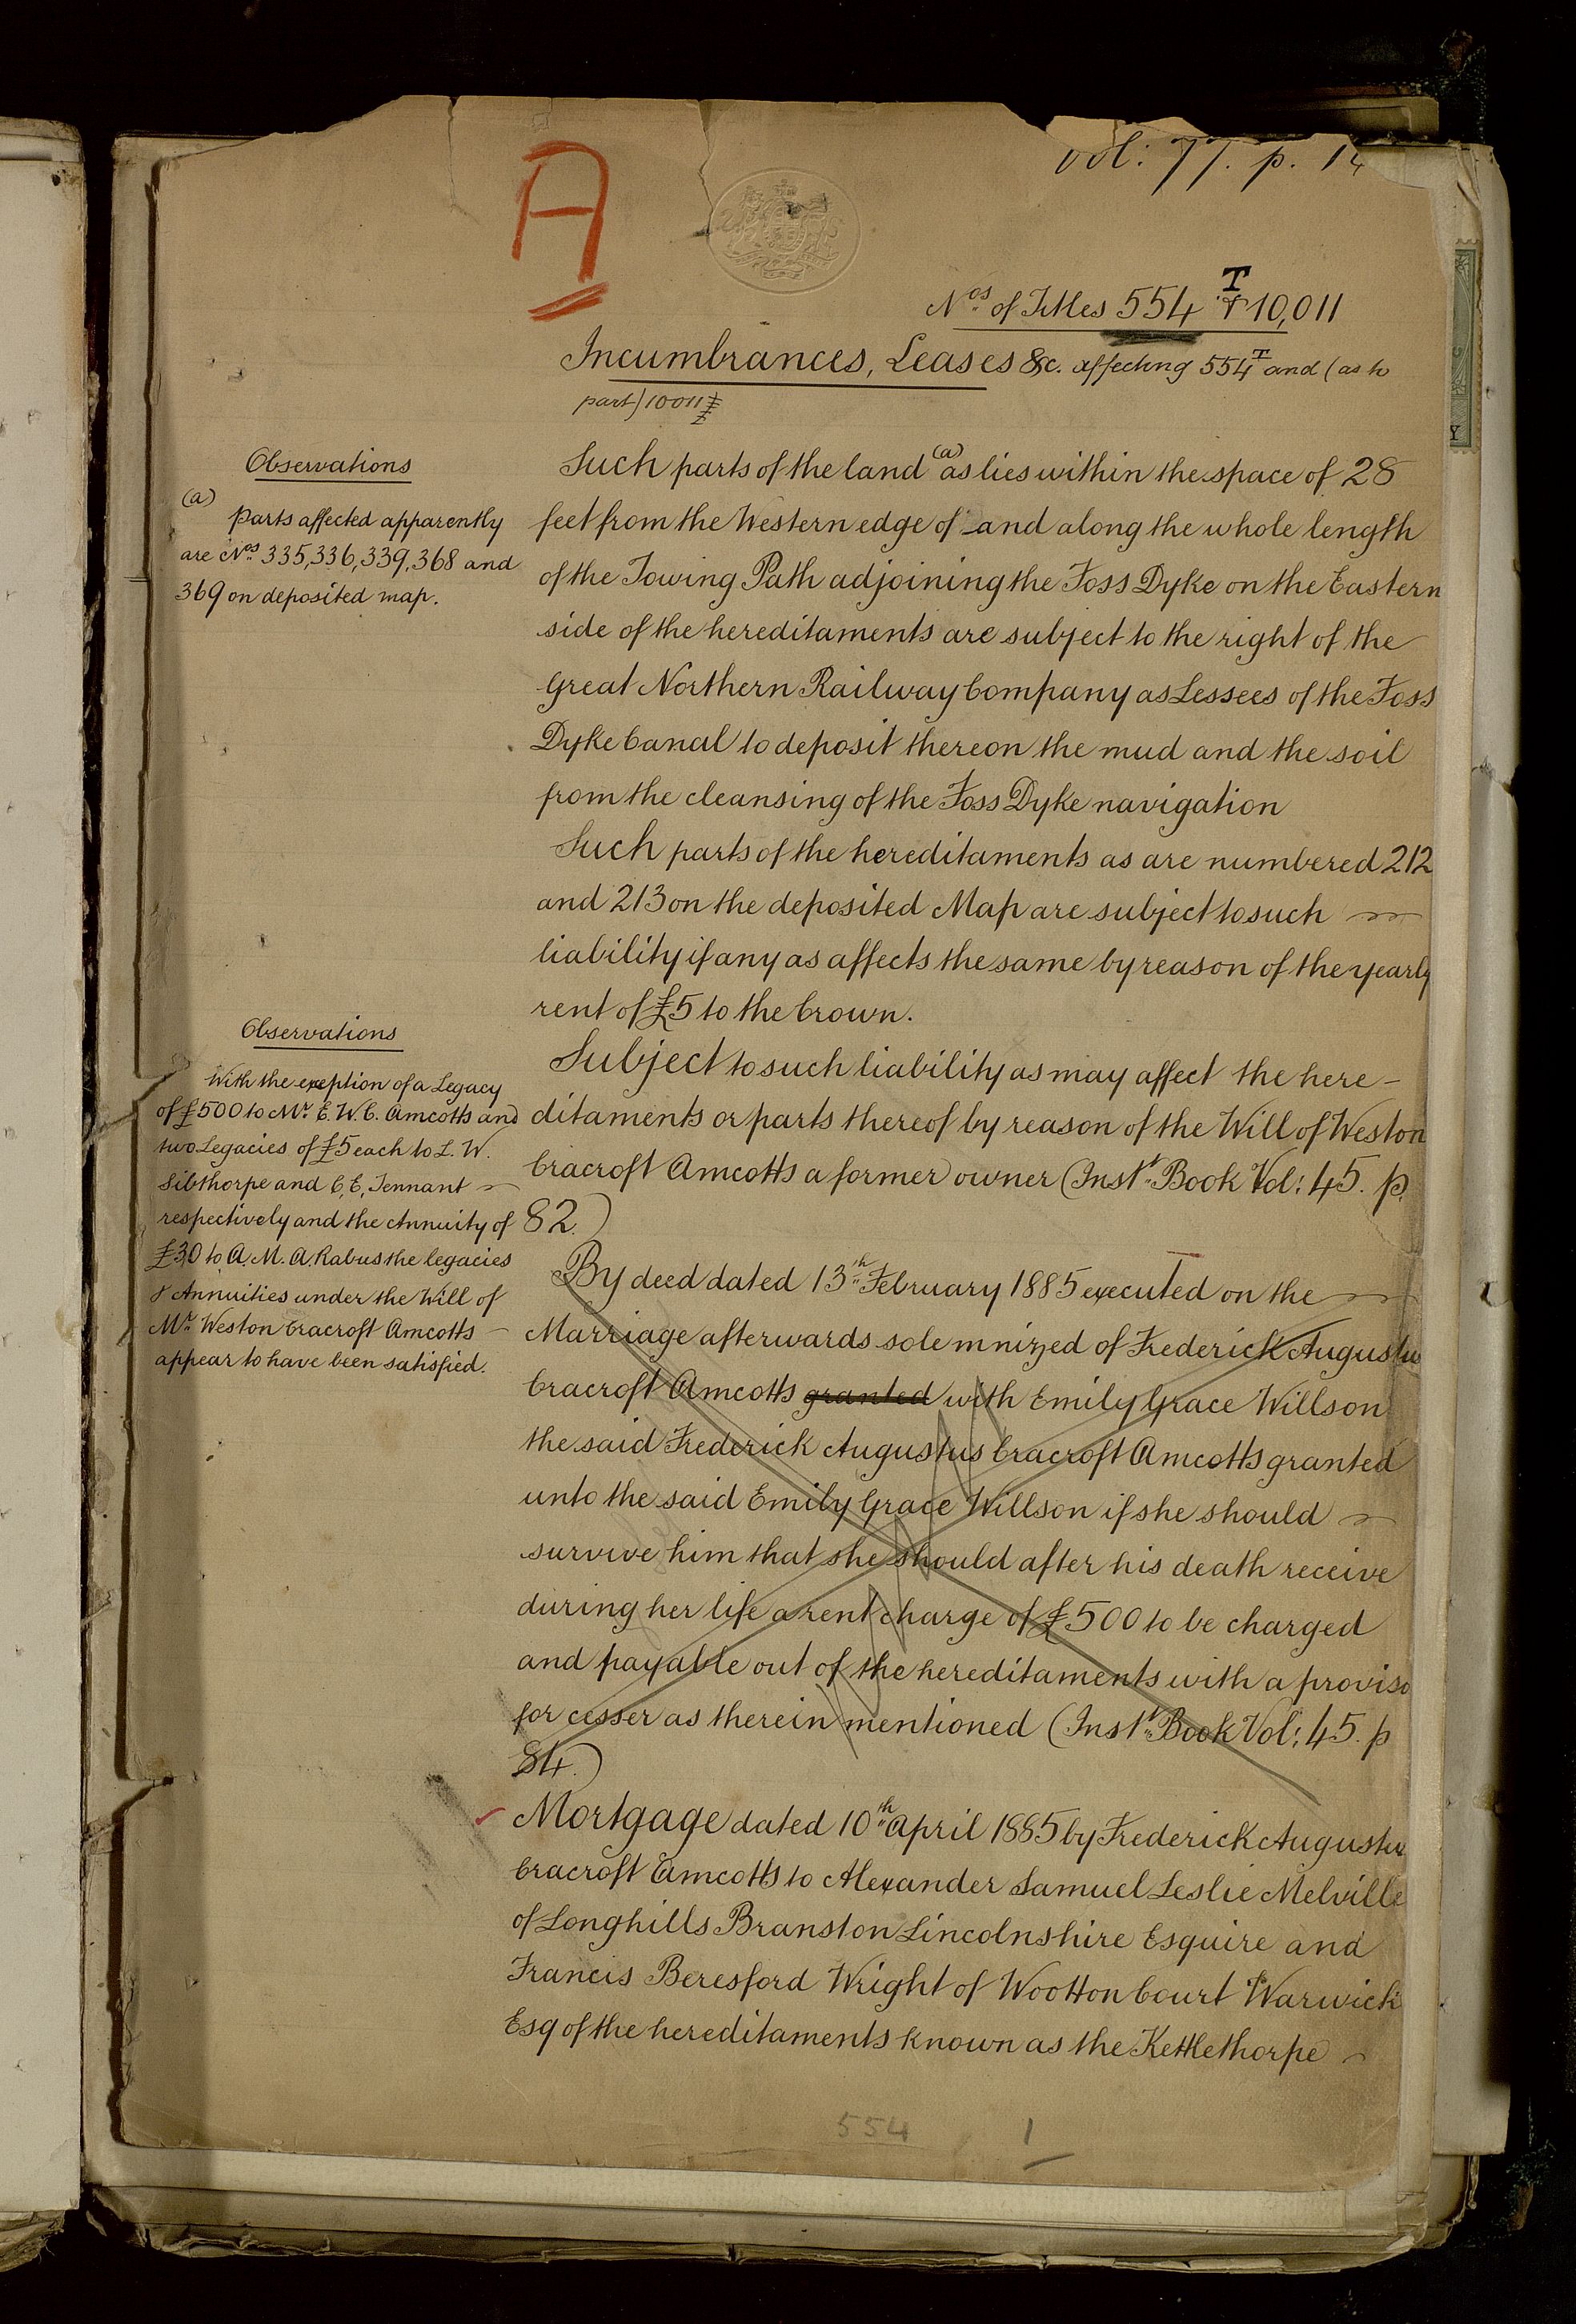 A
Vol: 77. p. 14
Nos of Titles 554 T & 10,011
Incumbrances, Leases &c. affecting 554 T and (as to
part) 10011
Observations
(a)
Parts affected apparently
are Nos 335, 336, 339, 368 and
369 on deposited map.
Such parts of the land (a) as lies within the space of 28
feet from the Western edge of and along the whole length
of the Towing Path adjoining the Foss Dyke on the Eastern
side of the hereditaments are subject to the right of the
Great Northern Railway Company as Lessees of the Foss
Dyke Canal to deposit thereon the mud and the soil
from the cleansing of the Foss Dyke navigation
Such parts of the hereditaments as are numbered 212
and 213 on the deposited Map are subject to such
liability if any as affects the same by reason of the yearly
rent of £5 to the Crown.
Observations
With the exeption of a Legacy
of £500 to Mr. E. W. C. Amcotts and
two Legacies of £5 each to L. W.
Sibthorpe and C. E. Tennant
respectively and the Annuity of
£30 to A. M. A. Rabus the legacies
& Annuities under the Will of
Mr. Weston Cracroft Amcotts
appear to have been satisfied.
Subject to such liability as may affect the here-
ditaments or parts thereof by reason of the Will of Weston
Cracroft Amcotts a former owner (Inst. Book Vol: 45. p.
82.)
By deed dated 13th February 1885 executed on the
Marriage afterwards solemnized of Frederick Augustus
Cracroft Amcotts granted with Emily Grace Willson
the said Frederick Augustus Cracroft Amcotts granted
unto the said Emily Grace Willson if she should
survive him that she should after his death receive
during her life a rent charge of £500 to be charged
and payable out of the hereditaments with a proviso
for cesser as therein mentioned (Inst. Book Vol: 45. p
84.)
Mortgage dated 10th April 1885 by Frederick Augustus
Cracroft Amcotts to Alexander Samuel Leslie Melville
of Longhills Branston Lincolnshire Esquire and
Francis Beresford Wright of Wootton Court Warwick
Esq of the hereditaments known as the Kettlethorpe
554
1